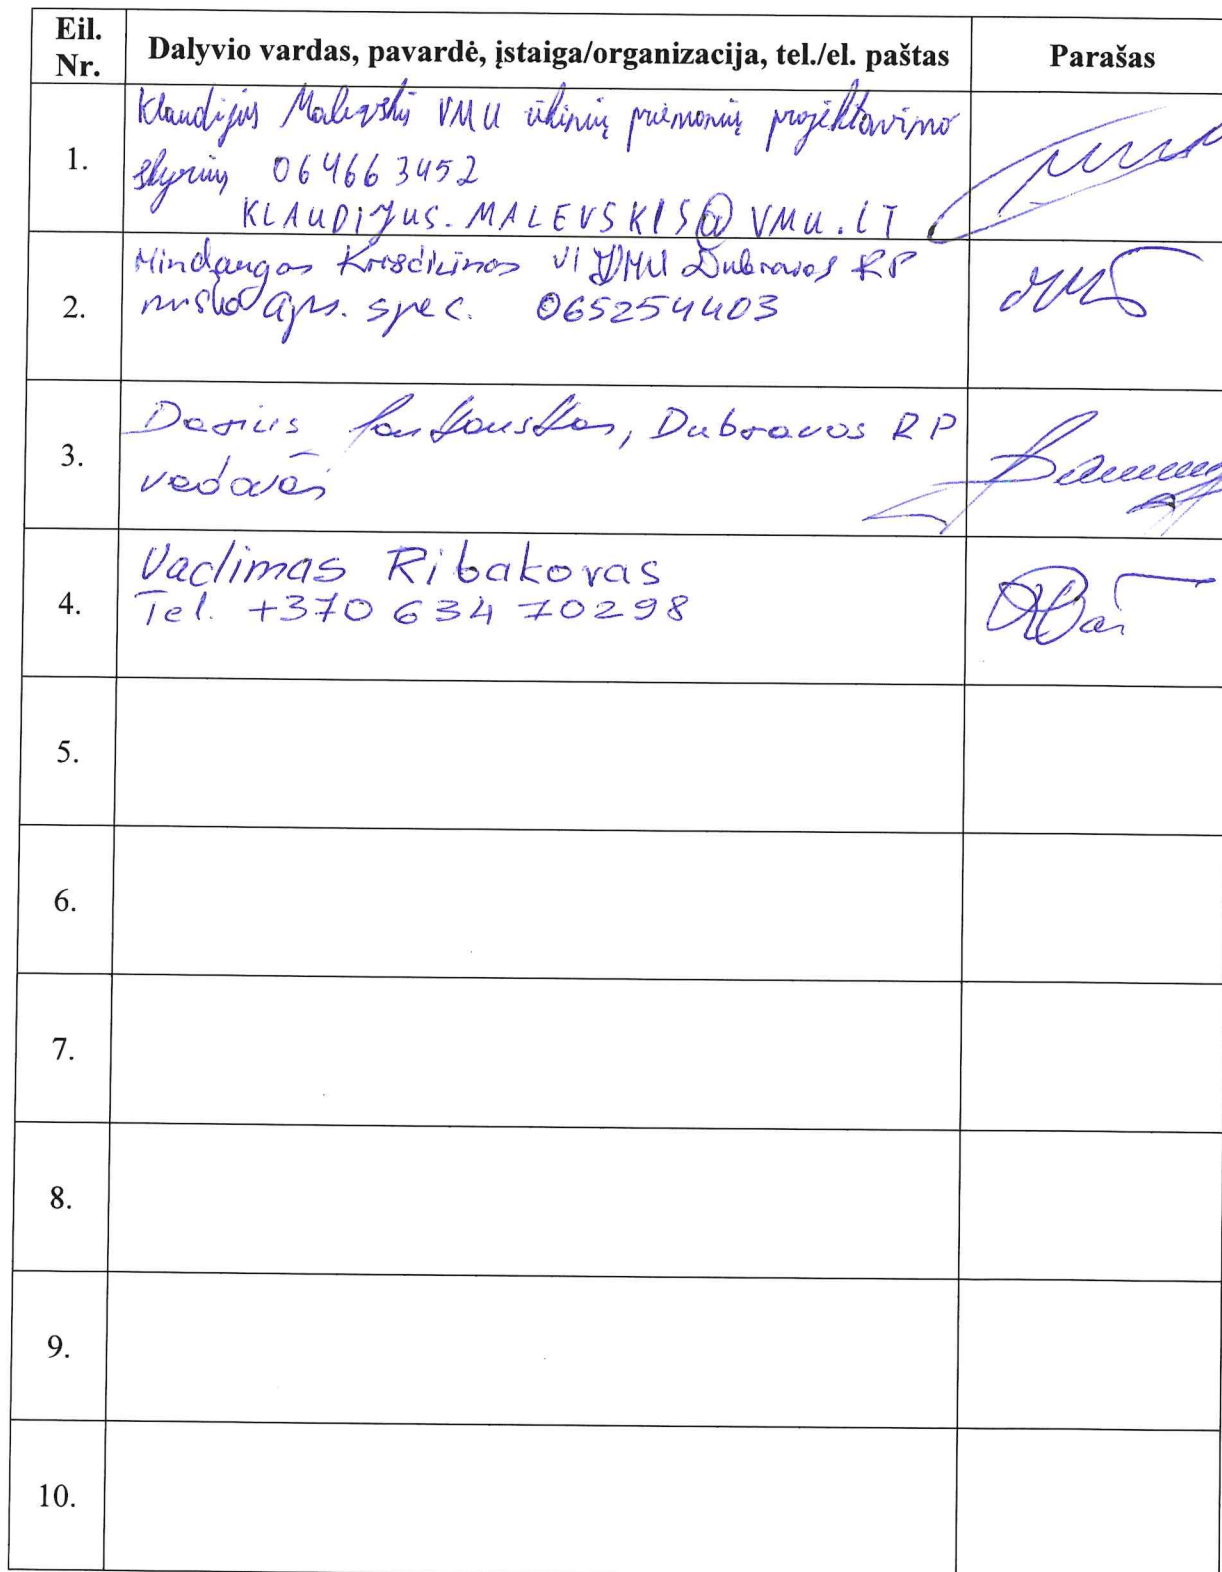 Eil. Nr. Dalyvio vardas, pavardė, įstaiga/organizacija, tel./el. paštas Parašas
1. Klaudijus Malevskis VMU ūkinių priemonių projektavimo
skyrius, 064663452
KLAUDIJUS.MALEVSKIS@VMU.LT
2. Mindaugas VĮ VMU Dubravos RP
aps. spec. 065254403
3. Darius Dubravos RP
vadovas
4. Vadimas Ribakovas
Tel. +370 634 70298
5.
6.
7.
8.
9.
10.